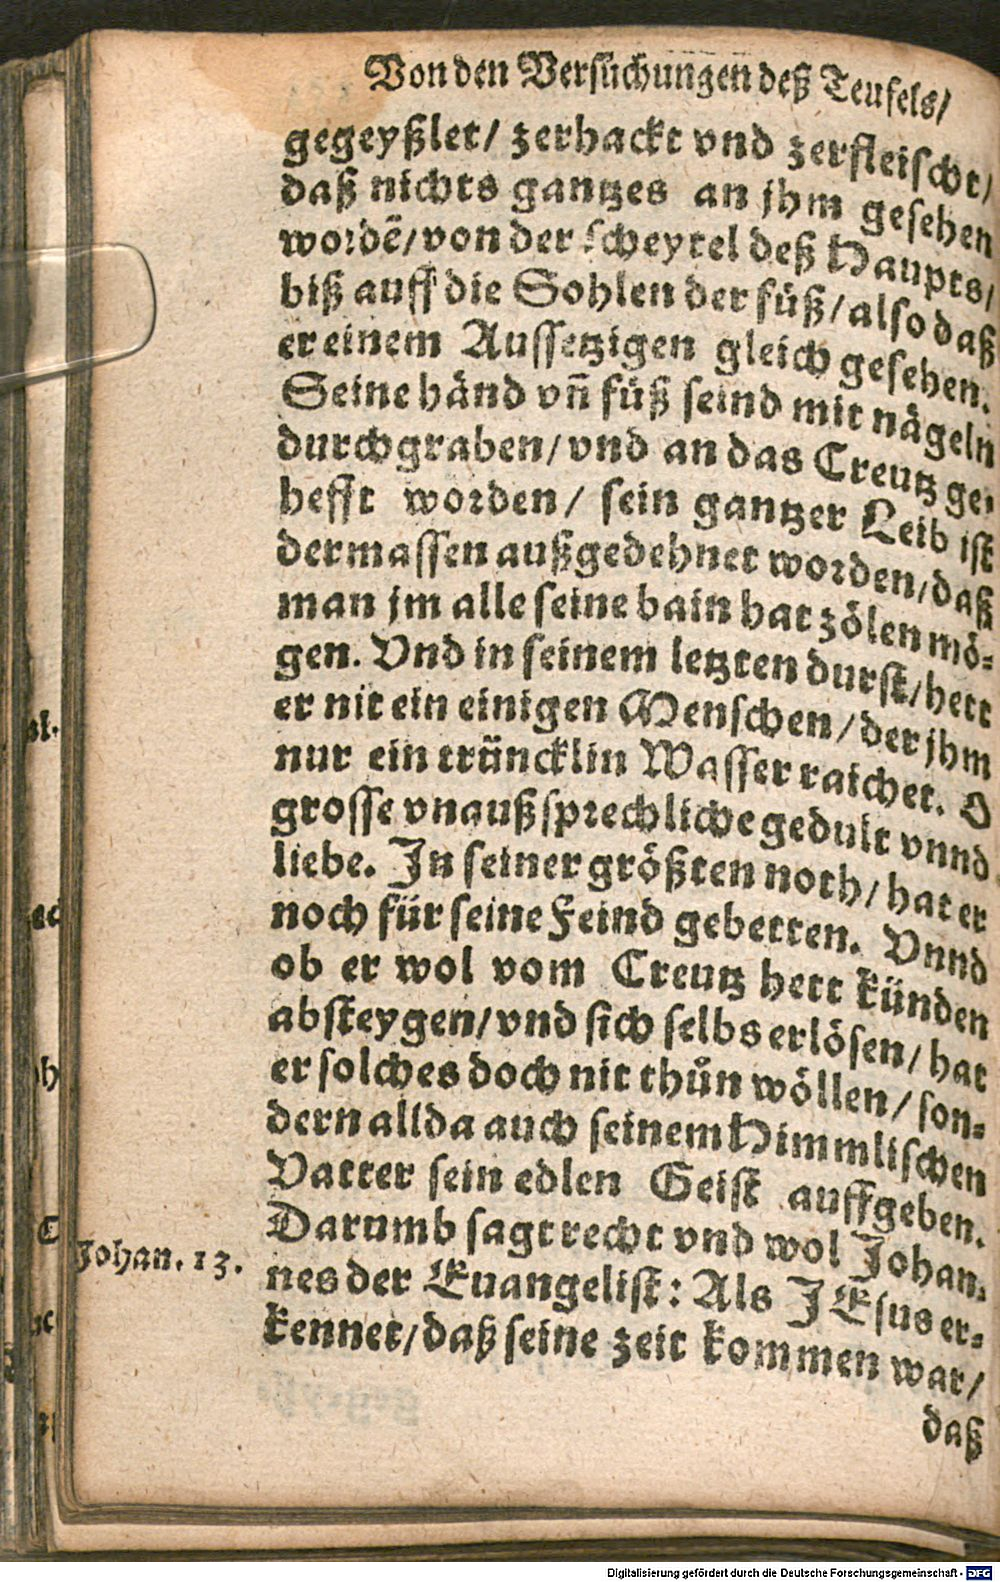 Von den Versuchungen deß Teufels/
gegeyßlet/ zerhackt vnd zerfleischt/
daß nichts gantzes an jhm gesehen
wordẽ/von der scheytel deß Haupts/
biß auff die Sohlen der füß/also daß
er einem Aussetzigen gleich gesehen.
Seine händ vñ füß seind mit nägeln
durchgraben/vnd an das Creutz ge-
hefft worden/ sein gantzer Leib ist
dermassen außgedehnet worden/daß
man jm alle seine bain hat zölen mö-
gen. Vnd in seinem letzten durst/hett
er nit ein einigen Menschen/der jhm
nur ein träncklin Wasser raichet. O
grosse vnaußsprechliche gedult vnnd
liebe. In seiner größten noth/hat er
noch für seine Feind gebetten. Vnnd
ob er wol vom Creutz hett künden
absteygen/vnd sich selbs erlösen/hat
er solches doch nit thůn wöllen/son-
dern allda auch seinem Himmlischen
Vatter sein edlen Geist auffgeben.
Darumb sagt recht vnd wol Johan-
Johan. 13.
nes der Euangelist: Als JEsus er-
kennet/daß seine zeit kommen war/
daß
Digitalisierung gefördert durch die Deutsche Forschungsgemeinschaft - DFG